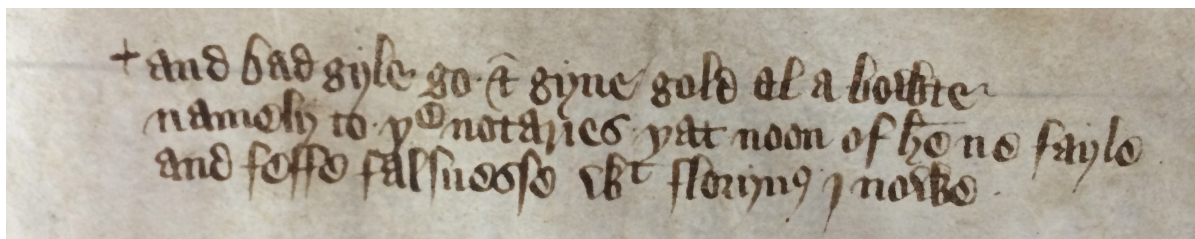 + and bad gyle go ⁊ gyue gold al a bowte
namely to yᵉ notaries yat noon of hē ne fayle
and feffe falsnesse wᵗ floryns j nowe